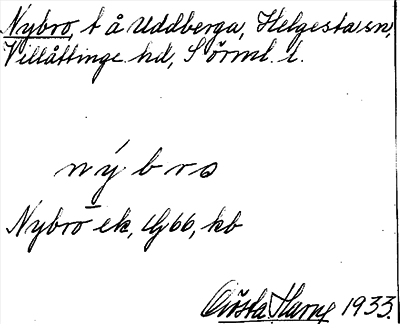 Nybro, t å Uddberga, Helgesta sn,
Villåttinge hd, Sörml. l.
nýbro
Nybro ek, Ij 66, kb
Gösta Harne 1933.